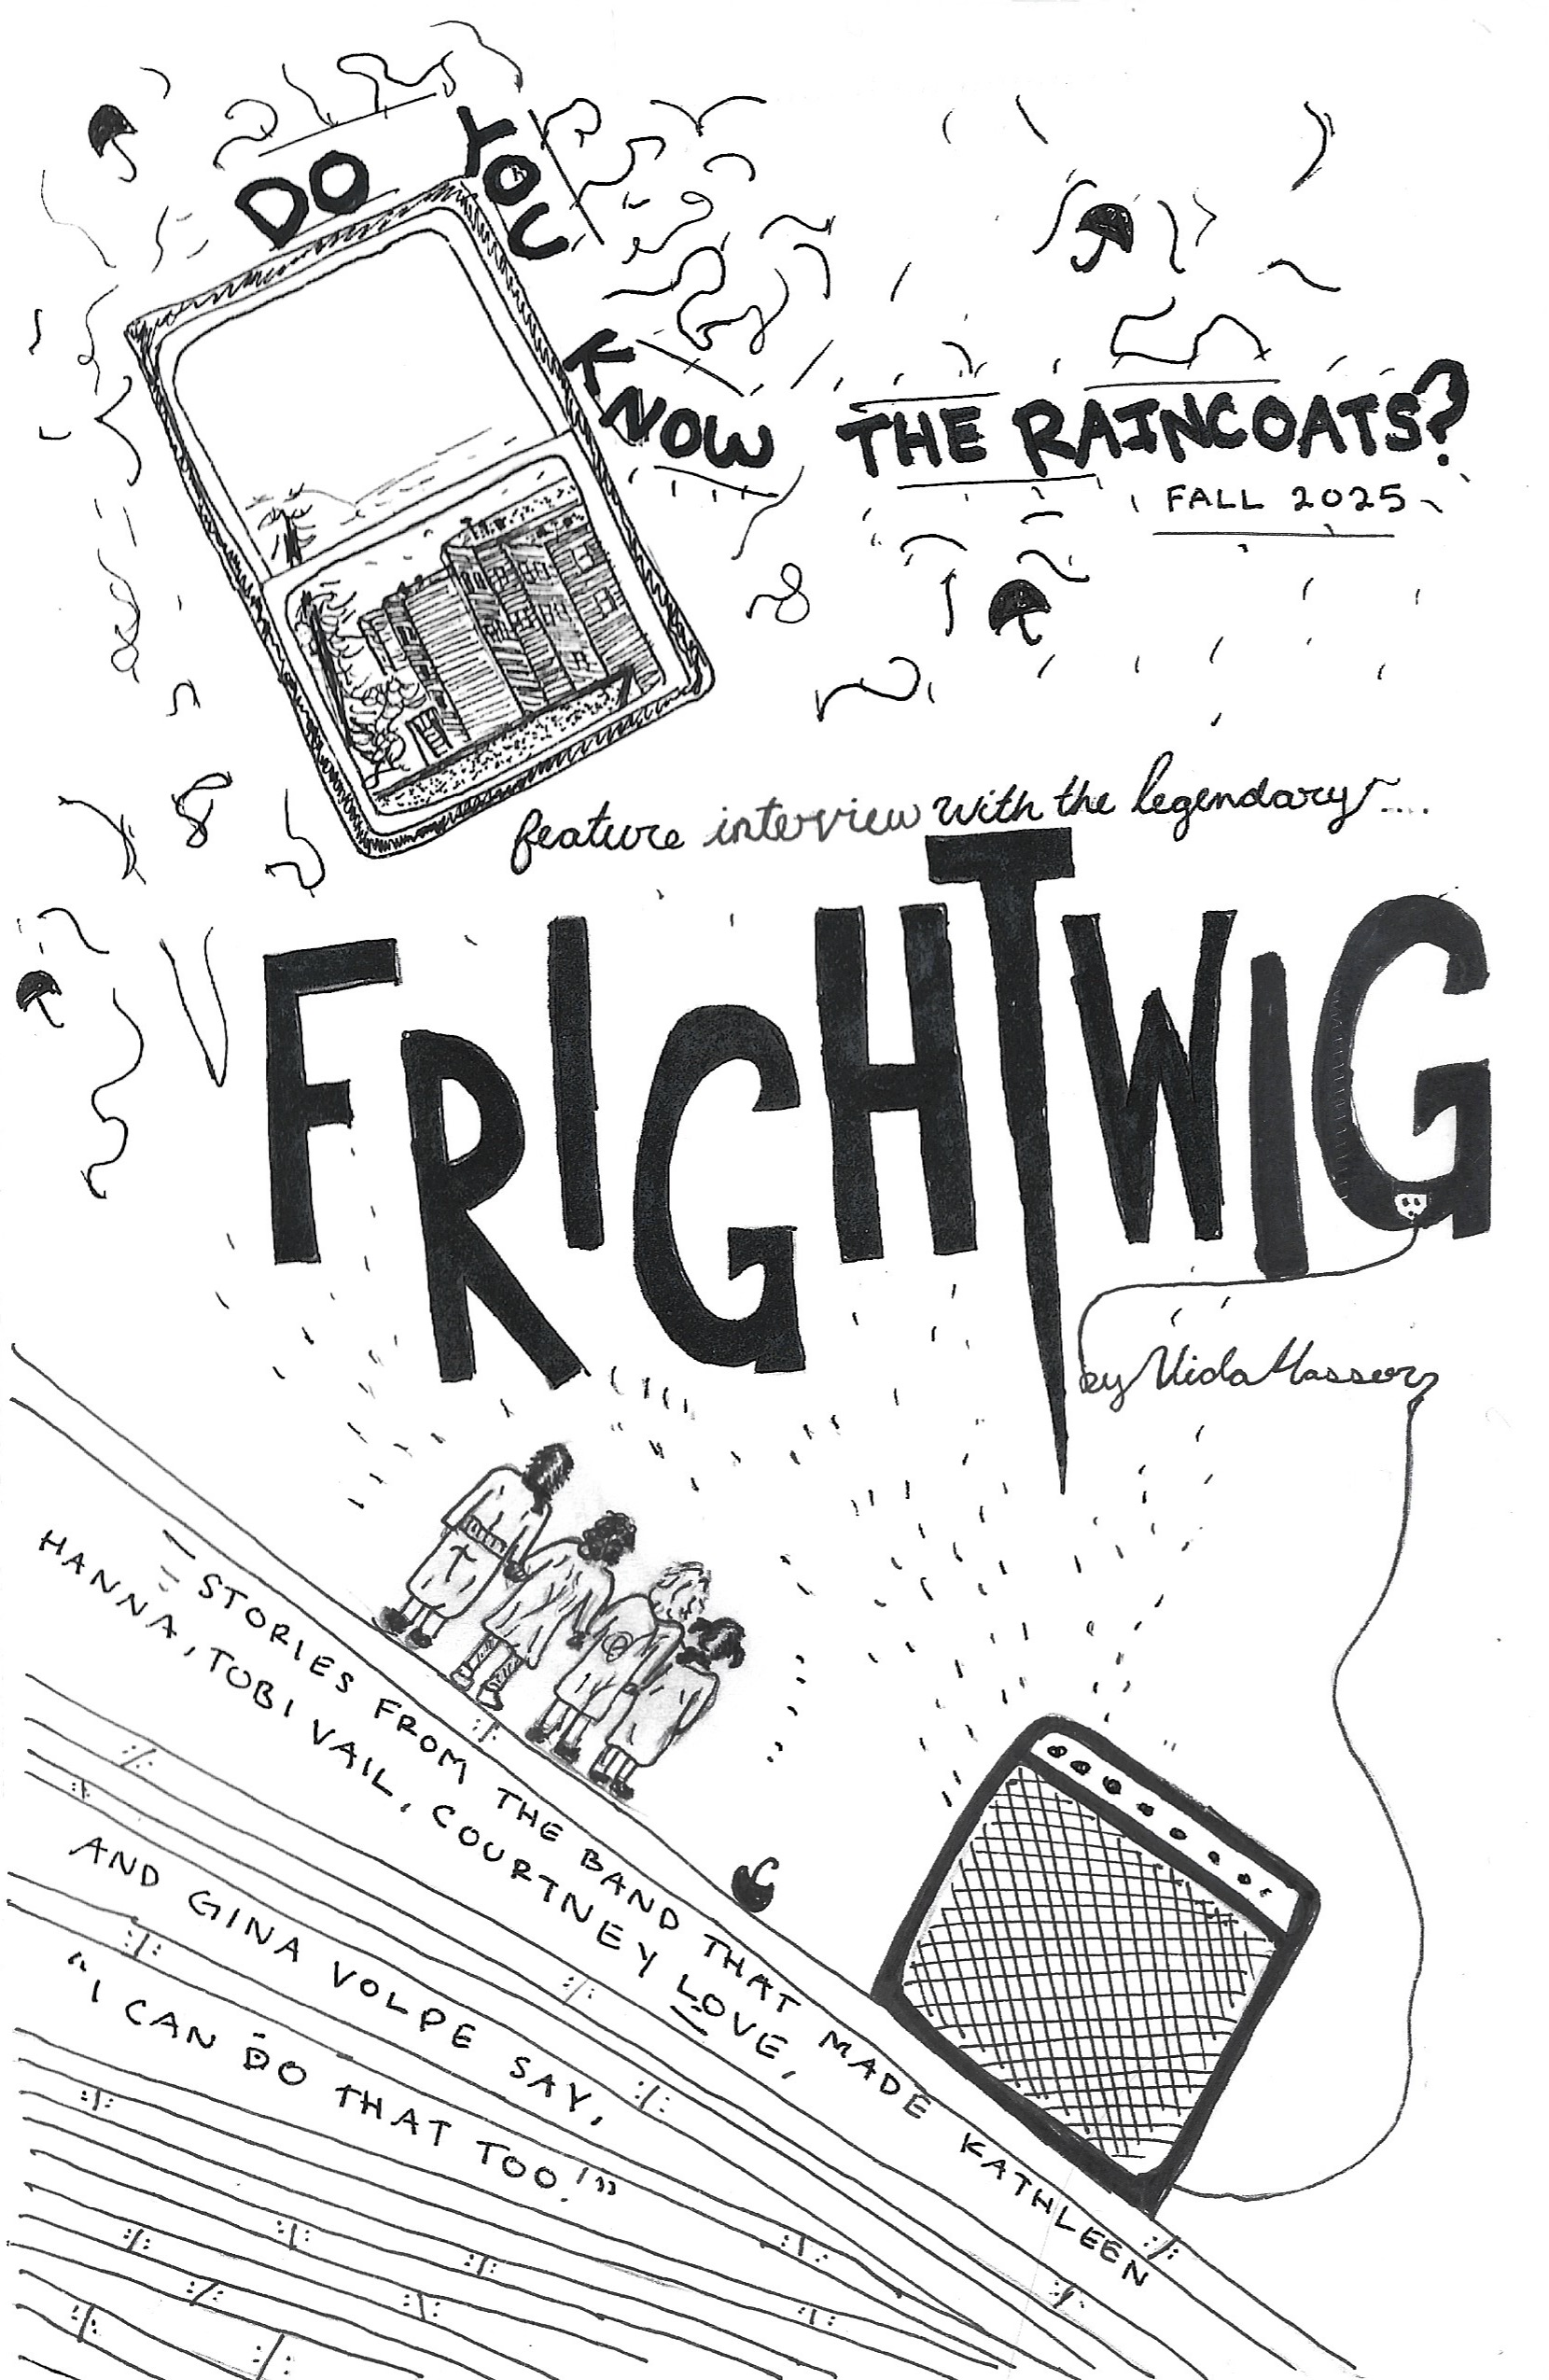 DO YOU KNOW THE RAINCOATS?
FALL 2025
feature interview with the legendary....
FRIGHTWIG
by Vida
STORIES FROM THE BAND THAT MADE KATHLEEN
HANNA, TOBI VAIL, COURTNEY LOVE,
AND GINA VOLPE SAY,
"I CAN DO THAT TOO!"